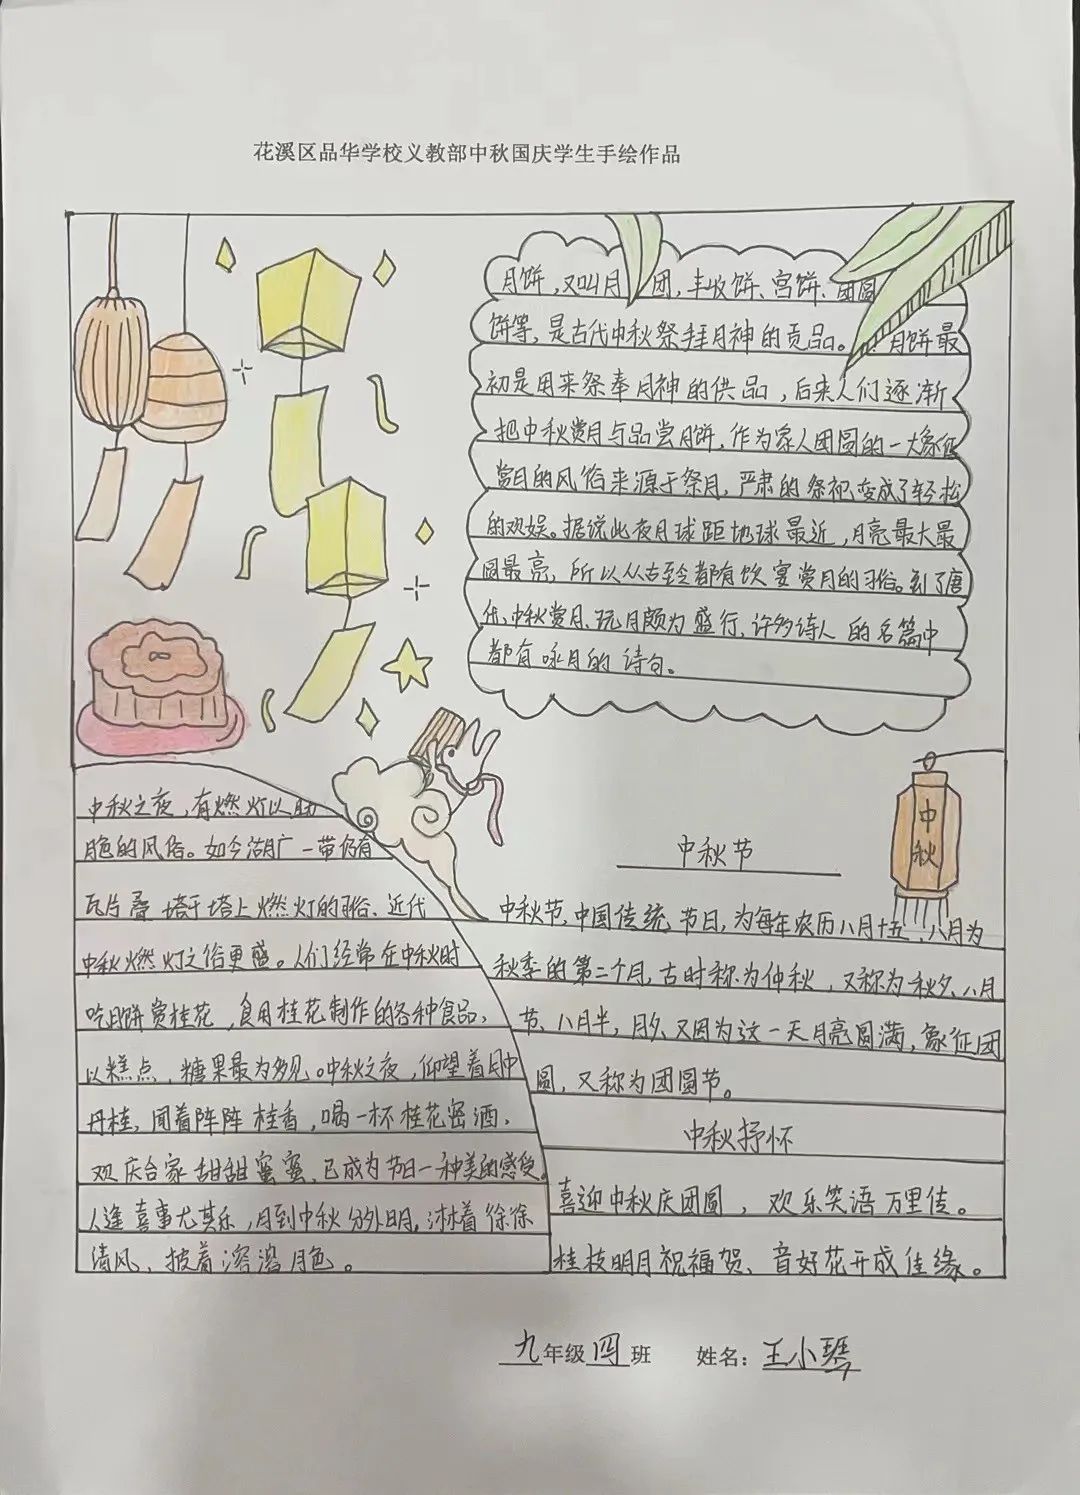 花溪区品华学校义教部中秋国庆学生手绘作品
月饼，又叫月团，丰收饼、宫饼、团圆
饼等，是古代中秋祭拜月神的贡品。月饼最
初是用来祭奉月神的供品，后来人们逐渐
把中秋赏月与品尝月饼，作为家人团圆的一大象征
赏月的风俗来源于祭月，严肃的祭祀变成了轻松
的欢娱。据说此夜月球距地球最近，月亮最大最
圆最亮，所以从古至今都有饮宴赏月的习俗。到了唐
代，中秋赏月、玩月颇为盛行，许多诗人的名篇中
都有咏月的诗句。
中秋之夜，有燃灯以助
月色的风俗。如今湖广一带仍有
瓦片叠塔于塔上燃灯的习俗、近代
中秋燃灯之俗更盛。人们经常在中秋时
吃月饼赏桂花，食用桂花制作的各种食品，
以糕点、糖果最为多见。中秋之夜，仰望着月中
丹桂，闻着阵阵桂香，喝一杯桂花密酒，
欢庆合家甜甜蜜蜜，已成为节日一种美的感受。
人逢喜事尤其乐，月到中秋分外明，淋着徐徐
清风、披着溶溶月色。
中秋
中秋节
中秋节，中国传统节日，为每年农历八月十五，八月为
秋季的第二个月，古时称为仲秋，又称为秋夕、八月
节、八月半，月夕、又因为这一天月亮圆满，象征团
圆，又称为团圆节。
中秋抒怀
喜迎中秋庆团圆，欢乐笑语万里传。
桂枝明月祝福贺、音好花开成佳缘。
九年级四班 姓名：王小琴